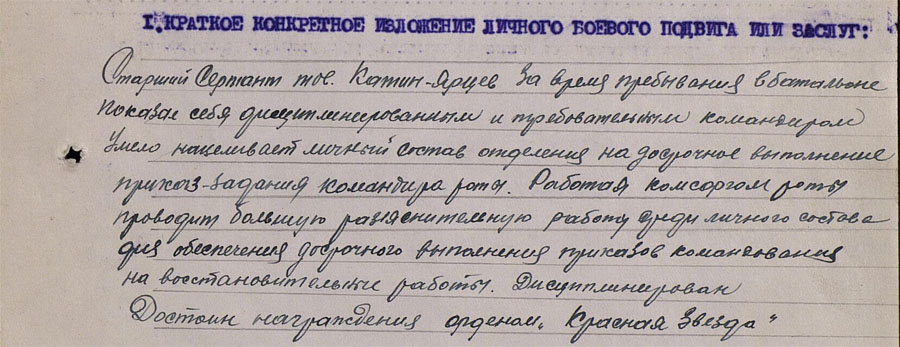 I. КРАТКОЕ КОНКРЕТНОЕ ИЗЛОЖЕНИЕ ЛИЧНОГО БОЕВОГО ПОДВИГА ИЛИ ЗАСЛУГ:
Старший Сержант тов. Катин-Ярцев за время пребывания в батальоне
показал себя дисциплинированным и требовательным командиром
Умело нацеливает личный состав отделения на досрочное выполнение
приказ-задания командира роты. Работая комсоргом роты
проводит большую разяснительную работу среди личного состава
для обеспечения досрочного выполнения приказов командования
на восстановительные работы. Дисциплинирован
Достоин награждения орденом „Красная Звезда"